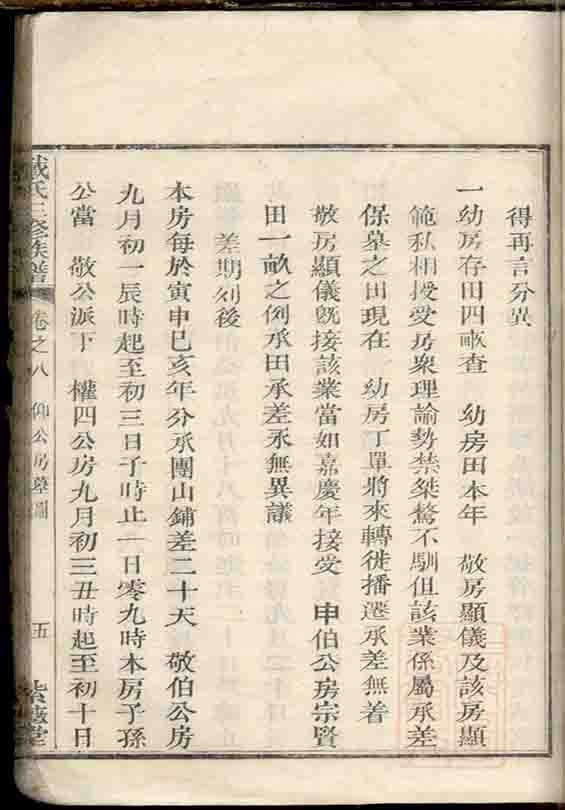 得再言分異
一幼房存田四畝查 幼房田本年 敬房顯儀及該房顯
範私相授受房衆理諭勢禁桀驁不馴但該業係屬承差
保墓之田現在 幼房丁單將來轉徙播遷承差無着
敬房顯儀既接該業當如嘉慶年接受 申伯公房宗賢
田一畝之例承田承差永無異議
差期列後
本房每於寅申巳亥年分承團山鋪差二十天 敬伯公房
九月初一辰時起至初三日子時止一日零九時本房子孫
公當 敬公派下 權四公房九月初三丑時起至初十日
戴氏三修族譜 卷之八 仰公房墓圖 五